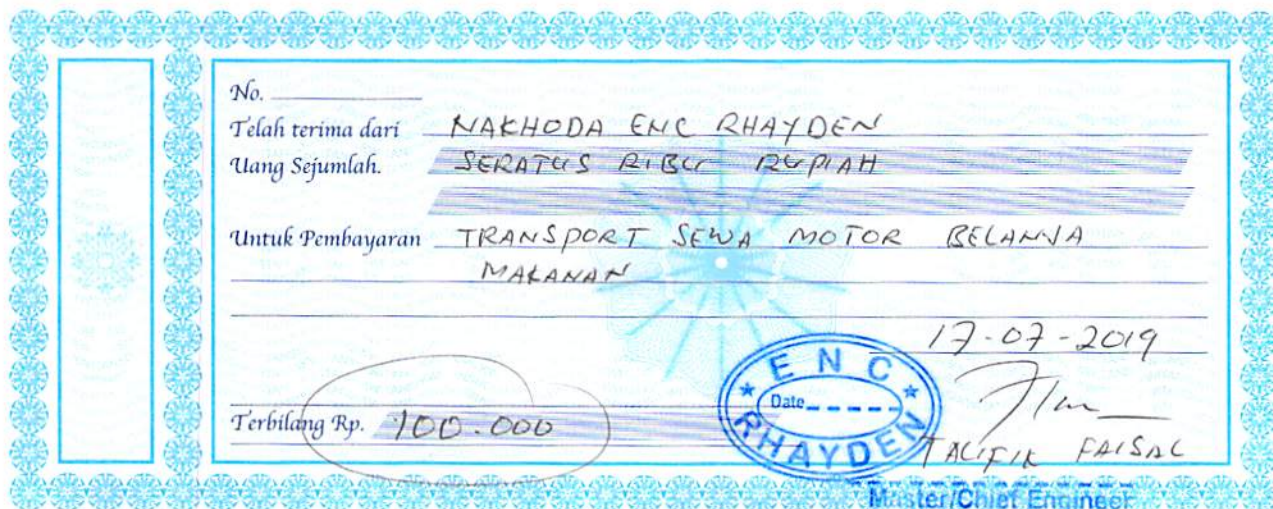 No.
Telah terima dari NAKHODA ENC RHAYDEN
Uang Sejumlah. SERATUS RIBU RUPIAH
Untuk Pembayaran TRANSPORT SEWA MOTOR BELANJA
MAKANAN
17-07-2019
ENC
Date
RHAYDEN
Terbilang Rp. 100.000
TAUFIK FAISAL
Master/Chief Engineer